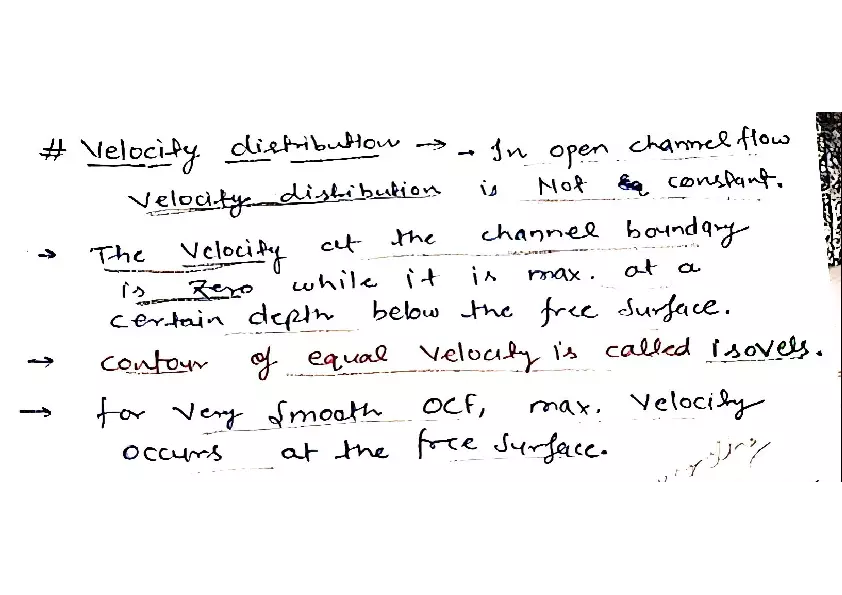 # Velocity distribution → → In open channel flow
Velocity distribution is Not constant.
→ The Velocity at the channel boundary
is zero while it is max. at a
certain depth below the free surface.
→ contour of equal Velocity is called isovels.
→ for very smooth OCF, max. velocity
occurs at the free surface.